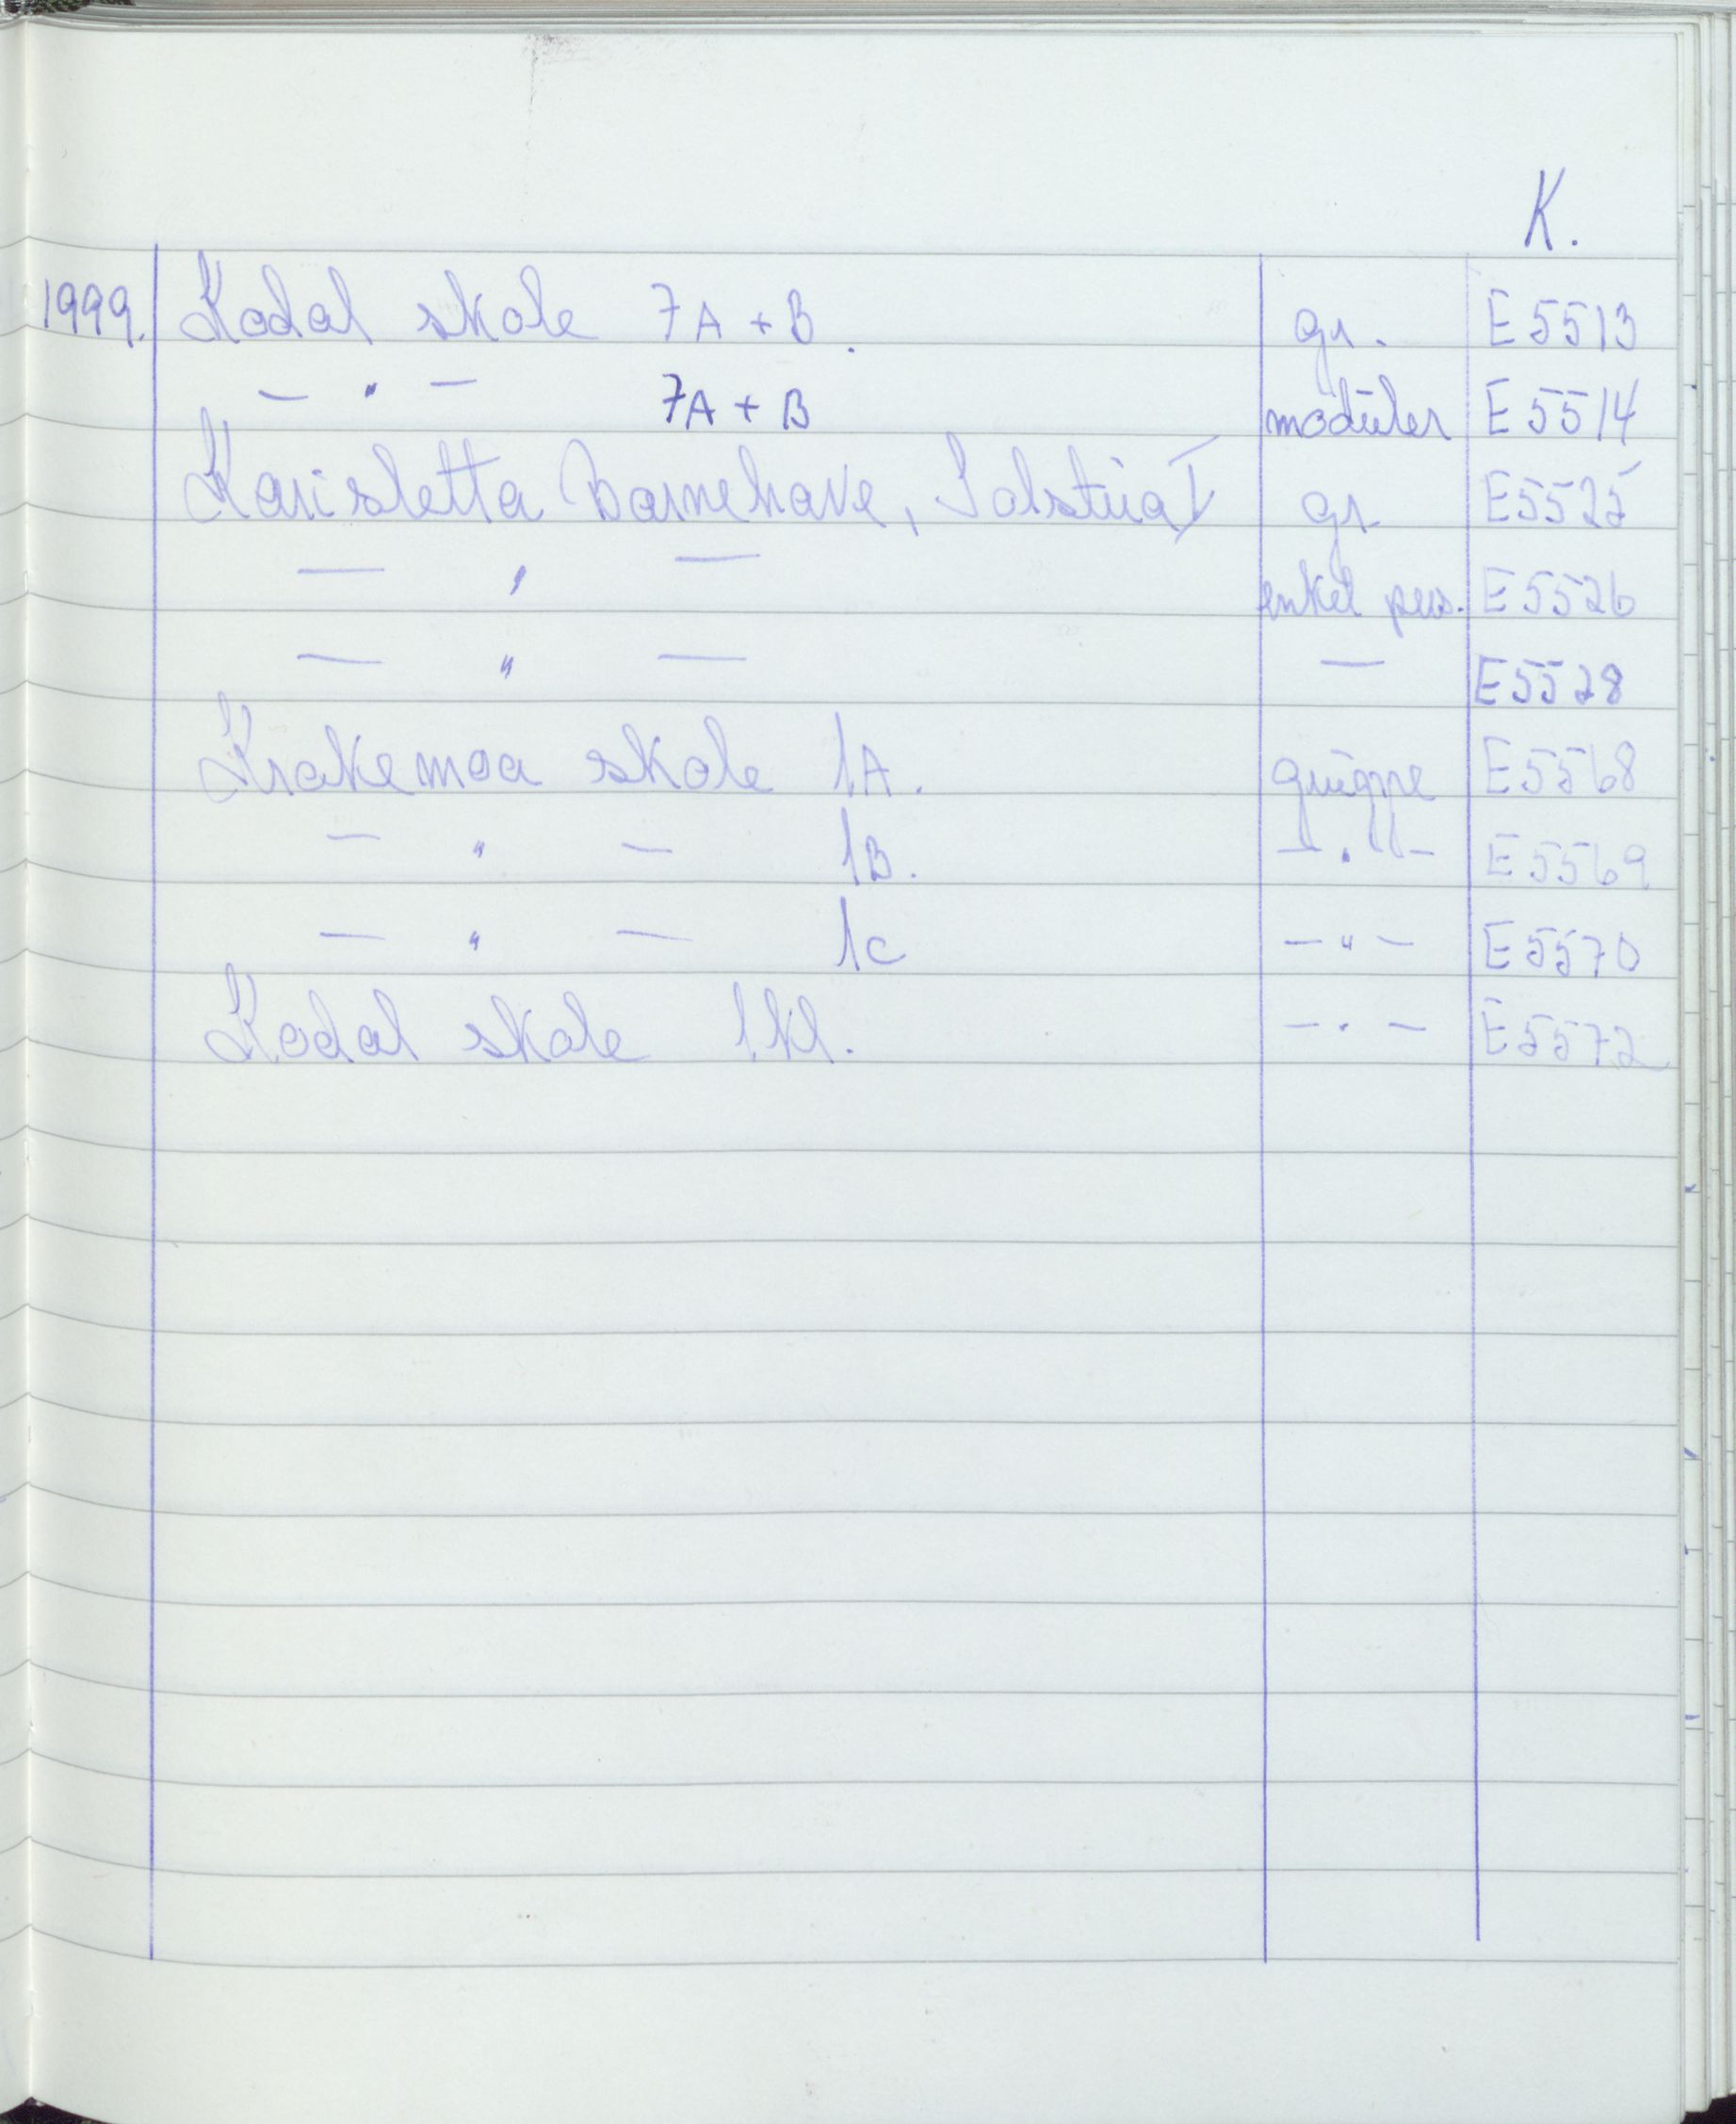 K.
1999. Kodal skole 7A + B. gr. E 5513
— " — 7A + B moduler E 5514
Karisletta Barnehave, gr E5525
— " — enkel pers. E 5526
— " — — E5528
Krakemoa skole 1A. gruppe E 5568
— " — 1B. — " — E 5569
— " — 1C — " — E 5570
Kodal skole 1kl. — " — E 5572